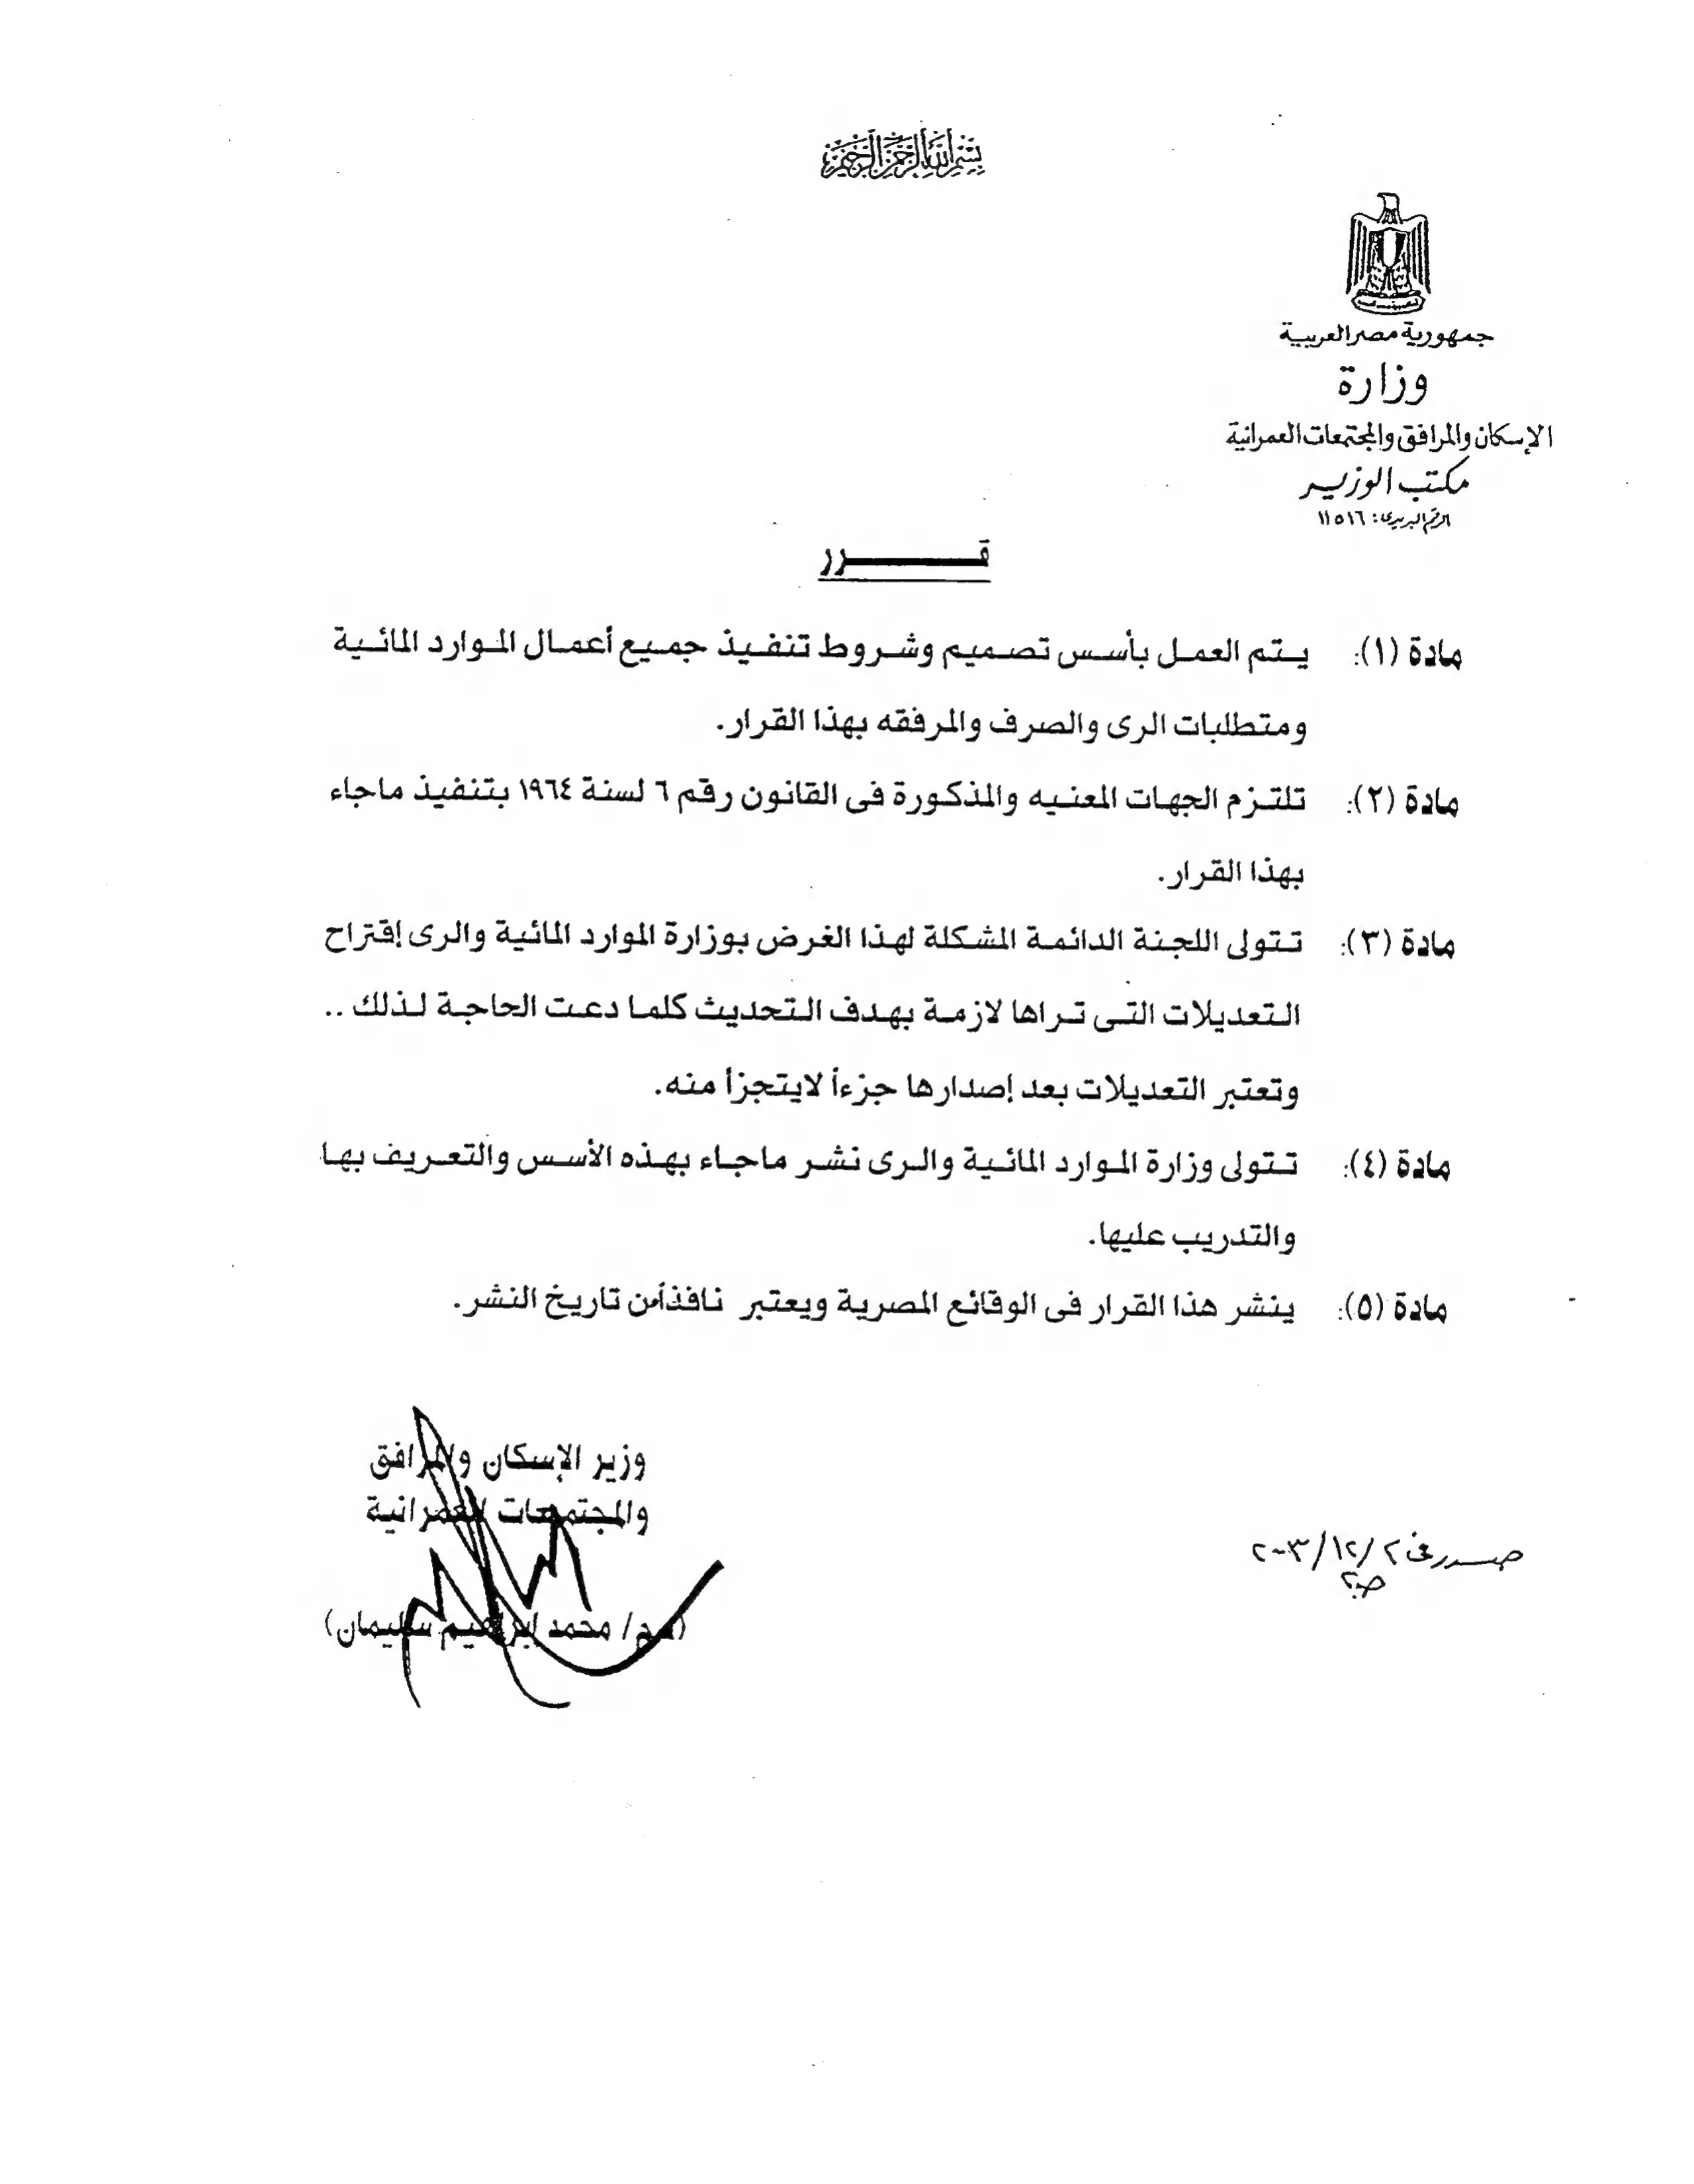 بسم الله الرحمن الرحيم
جمهورية مصر العربية
وزارة
الإسكان والمرافق والمجتمعات العمرانية
مكتب الوزير
الرقم البريدى : ١١٥١٦
قــــــرر
مادة (١): يـتم العمـل بـأسـس تـصـميم وشـروط تنفـيذ جمـيع أعمـال المـوارد المائـية
ومتطلبات الرى والصرف والمرفقه بهذا القرار.
مادة (٢): تلتـزم الجهات المعنـيه والمذكـورة فى القانون رقم ٦ لسنة ١٩٦٤ بتنفيذ ماجاء
بهذا القرار.
مادة (٣): تـتولى اللجـنة الدائمـة المشكلة لهذا الغرض بوزارة الموارد المائية والرى إقتراح
الـتعديلات التـى تـراها لازمـة بهـدف الـتحديث كلمـا دعـت الحاجـة لـذلك ..
وتعتبر التعديلات بعد إصدارها جزءاً لايتجزأ منه.
مادة (٤): تـتولى وزارة المـوارد المائـية والـرى نشـر مـاجـاء بهـذه الأسـس والتعـريف بهـا
والتدريب عليها.
مادة (٥): ينشر هذا القرار فى الوقائع المصرية ويعتبر نافذاًمن تاريخ النشر.
وزير الإسكان والمرافق
والمجتمعات العمرانية
صـدر فى ٢ /١٢/ ٢٠٠٣
(م/ محمد إبراهيم سليمان)